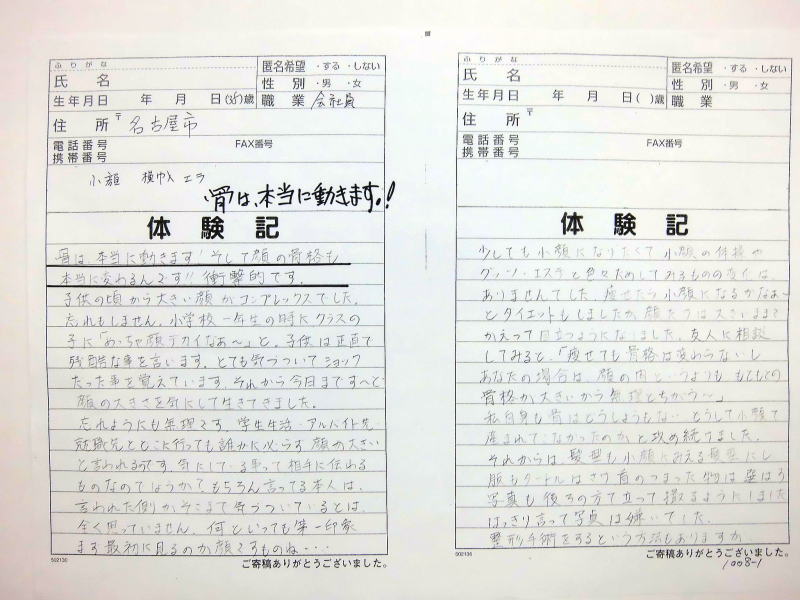 ふりがな
氏名
匿名希望 ・する ・しない
性別 ・男 ・女
生年月日 年 月 日(35)歳
職業 会社員
住所 〒 名古屋市
電話番号 FAX番号
携帯番号
小顔 横巾 エラ
骨は、本当に動きます。!
体験記
骨は、本当に動きます!そして顔の骨格も
本当に変わるんです!!衝撃的です。
子供の頃から大きい顔がコンプレックスでした。
忘れもしません。小学校一年生の時にクラスの
子に「めっちゃ顔デカイなぁ〜」と。子供は正直で
残酷な事を言います。とても気づついてショック
だった事を覚えています。それから今日まですへて
顔の大きさを気にして生きてきました。
忘れようにも無理です。学生生活・アルバイト先・
就職先とどこに行っても誰かに必らず顔の大きい
と言われるのです。気にしている事って相手に伝わる
ものなのでしょうか?もちろん言ってる本人は、
言われた側がそこまで気づついているとは、
全く思っていません。何といっても第一印象
まず最初に見るのが顔ですものね・・・
502130
ご寄稿ありがとうございました。
ふりがな
氏名
匿名希望 ・する ・しない
性別 ・男 ・女
生年月日 年 月 日( )歳
職業
住所 〒
電話番号 FAX番号
携帯番号
体験記
少しでも小顔になりたくて小顔の体操や
グッズ・エステと色々ためしてみるものの変化は、
ありませんでした。痩せたら小顔になるかなぁ〜
とダイエットもしましたが顔だけは大きいままで
かえって目立つようになりました。友人に相談
してみると、「痩せても骨格は変わらないし
あなたの場合は、顔の肉というよりも もともとの
骨格が大きいから無理とちがう〜」
私自身も骨はどうしようもない どうして小顔で
産まれてこなかったのかと攻め続けました。
それからは、髪型も小顔にみえる髪型にし
服もタートルはさけ首のつまった物は選ばず
写真も後ろの方で立って撮るようにしました
はっきり言って写真は嫌いでした。
整形手術をするという方法もありますが
502136
ご寄稿ありがとうございました。
1008-1